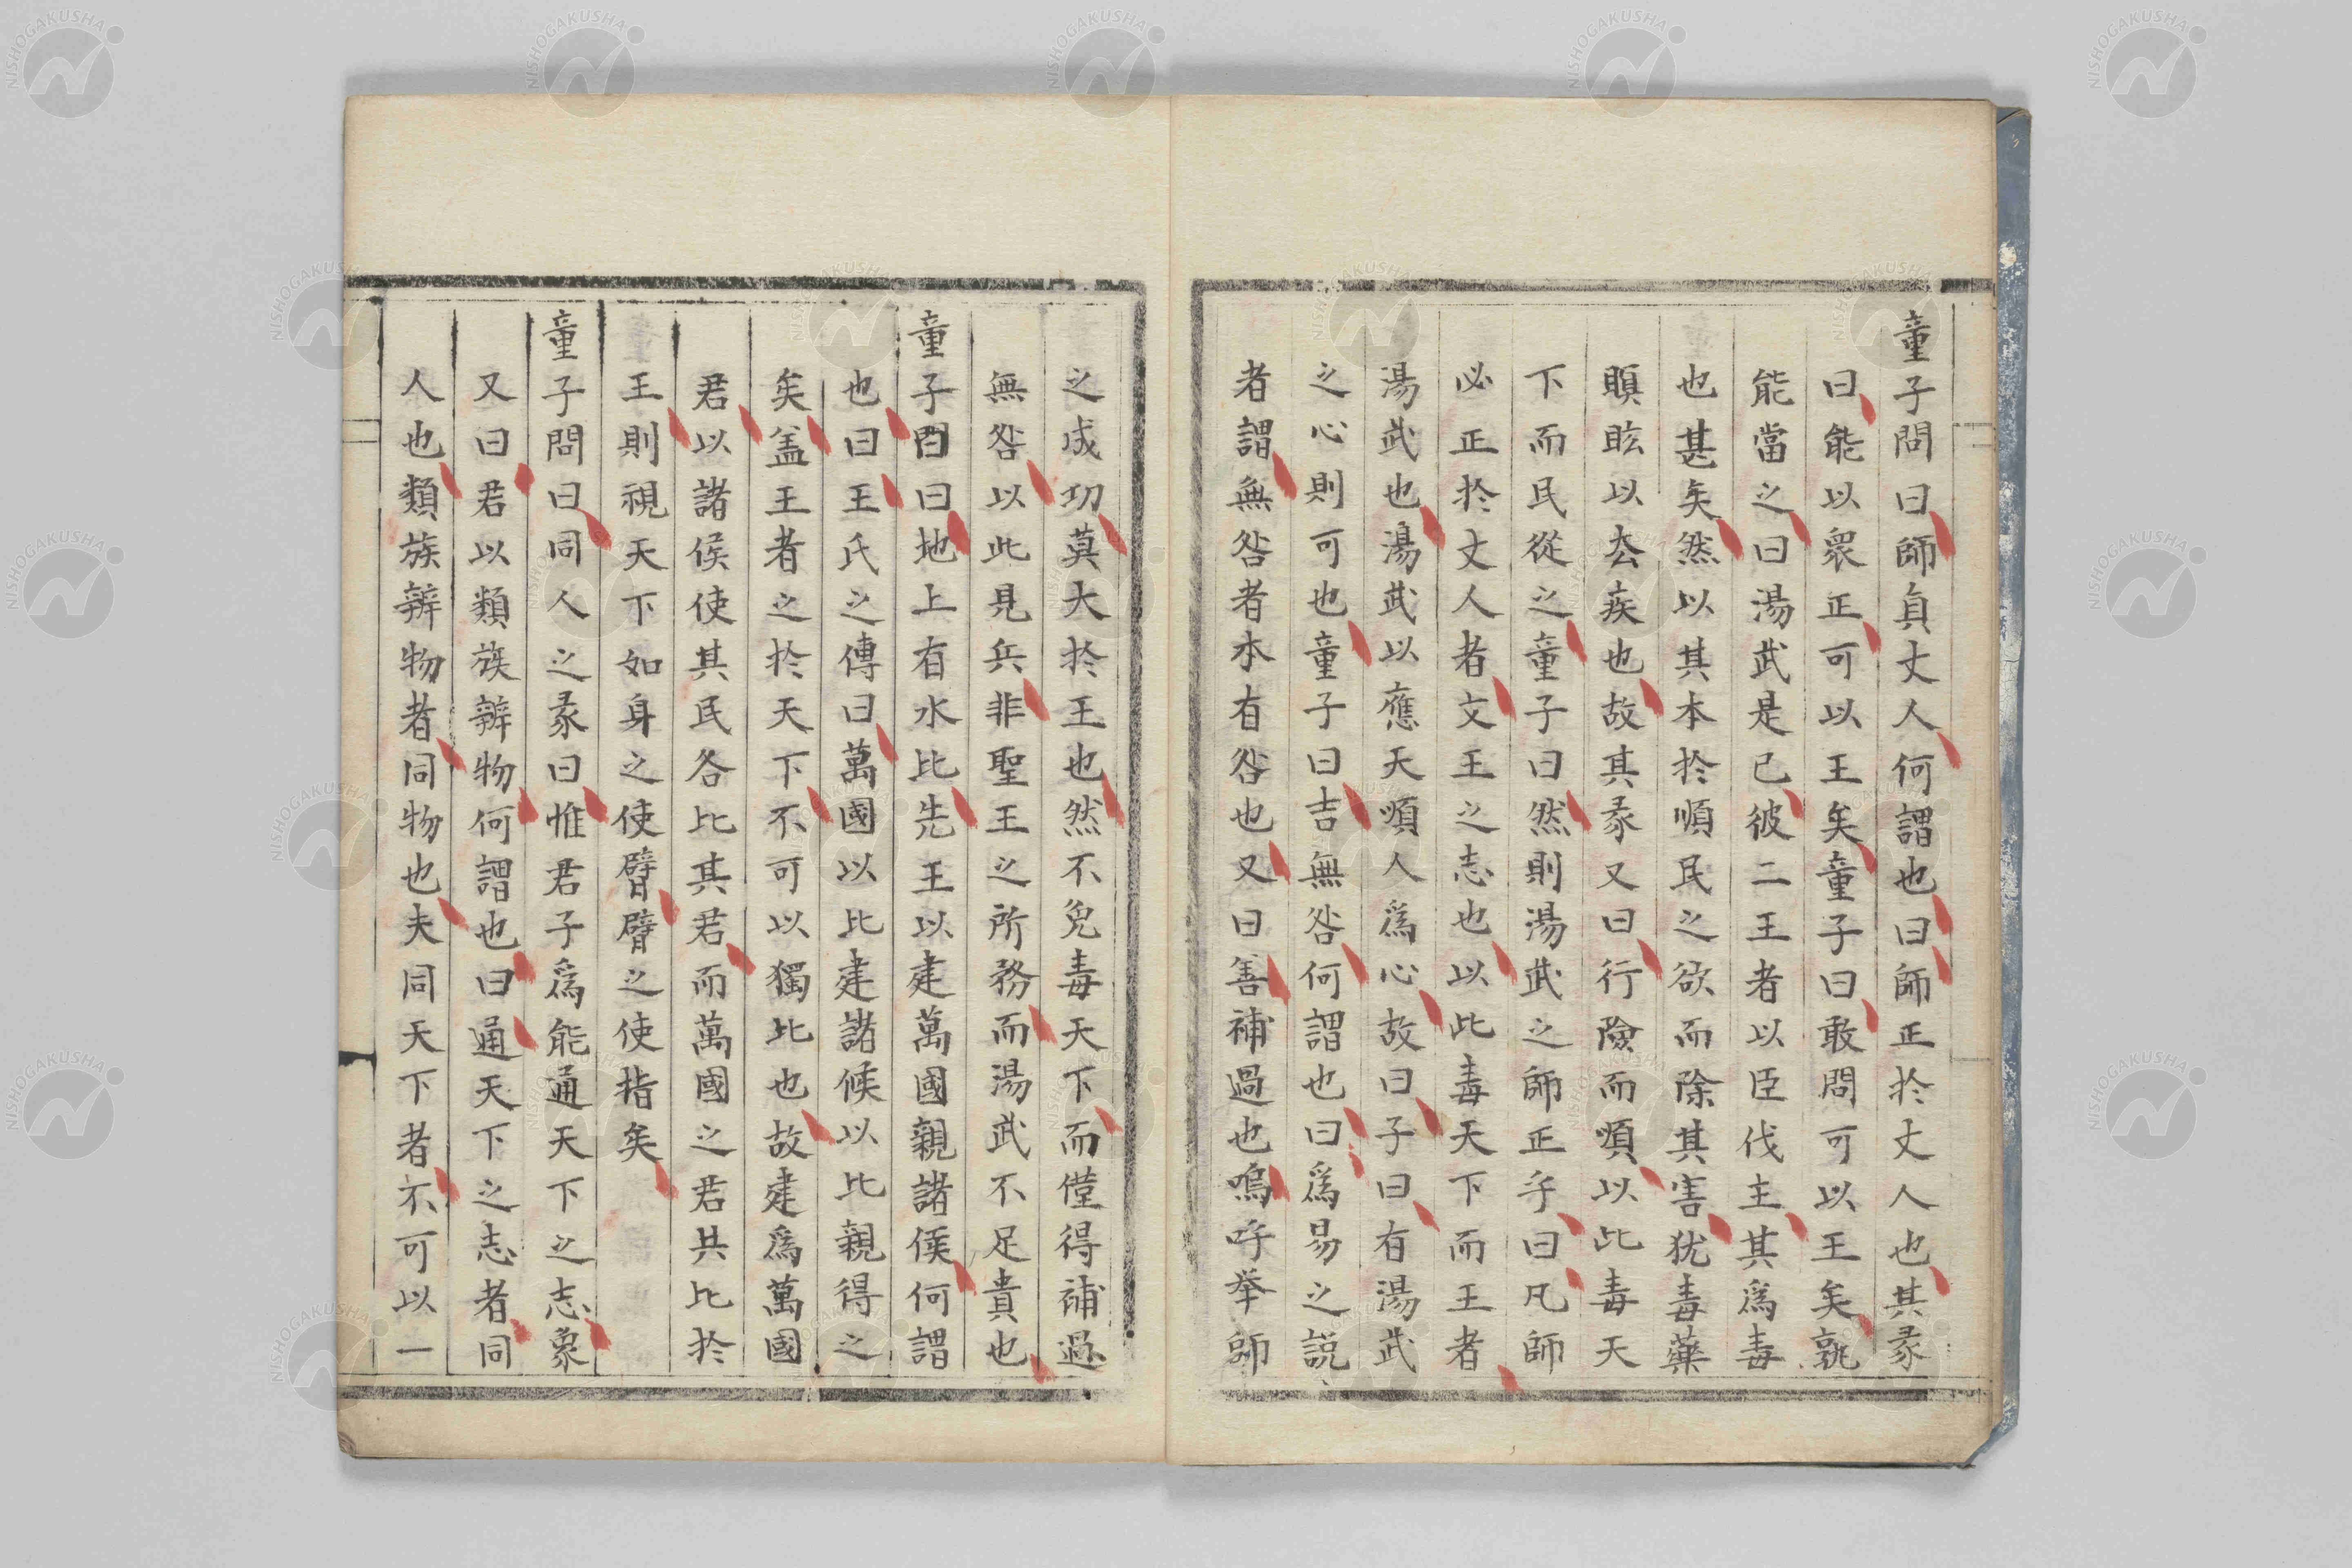 童子問曰師貞丈人何謂也曰師正於丈人也其彖
曰能以衆正可以王矣童子曰敢問可以王矣孰
能當之曰湯武是已彼二王者以臣伐主其爲毒
也甚矣然以其本於順民之欲而除其害犹毒藥
瞑眩以厺疾也故其彖又曰行險而順以比毒天
下而民從之童子曰然則湯武之師正乎曰凡師
必正於丈人者文王之志也以此毒天下而王者
湯武也湯武以應天順人爲心故曰子曰有湯武
之心則可也童子曰吉無咎何謂也曰爲易之説
者謂無咎者本有咎也又曰善補過也嗚呼举師
之成功莫大於王也然不免毒天下而僅得補過
無咎以此見兵非聖王之所務而湯武不足貴也
童子問曰地上有水比先王以建萬國親諸侯何謂
也曰王氏之傳曰萬國以比建諸候以比親得之
矣盖王者之於天下不可以獨比也故建爲萬國
君以諸侯使其民各比其君而萬國之君共比於
王則視天下如身之使臂臂之使指矣
童子問曰同人之彖曰惟君子爲能通天下之志象
又曰君以類族辨物何謂也曰通天下之志者同
人也類族辨物者同物也夫同天下者不可以一
NISHOGAKUSHA